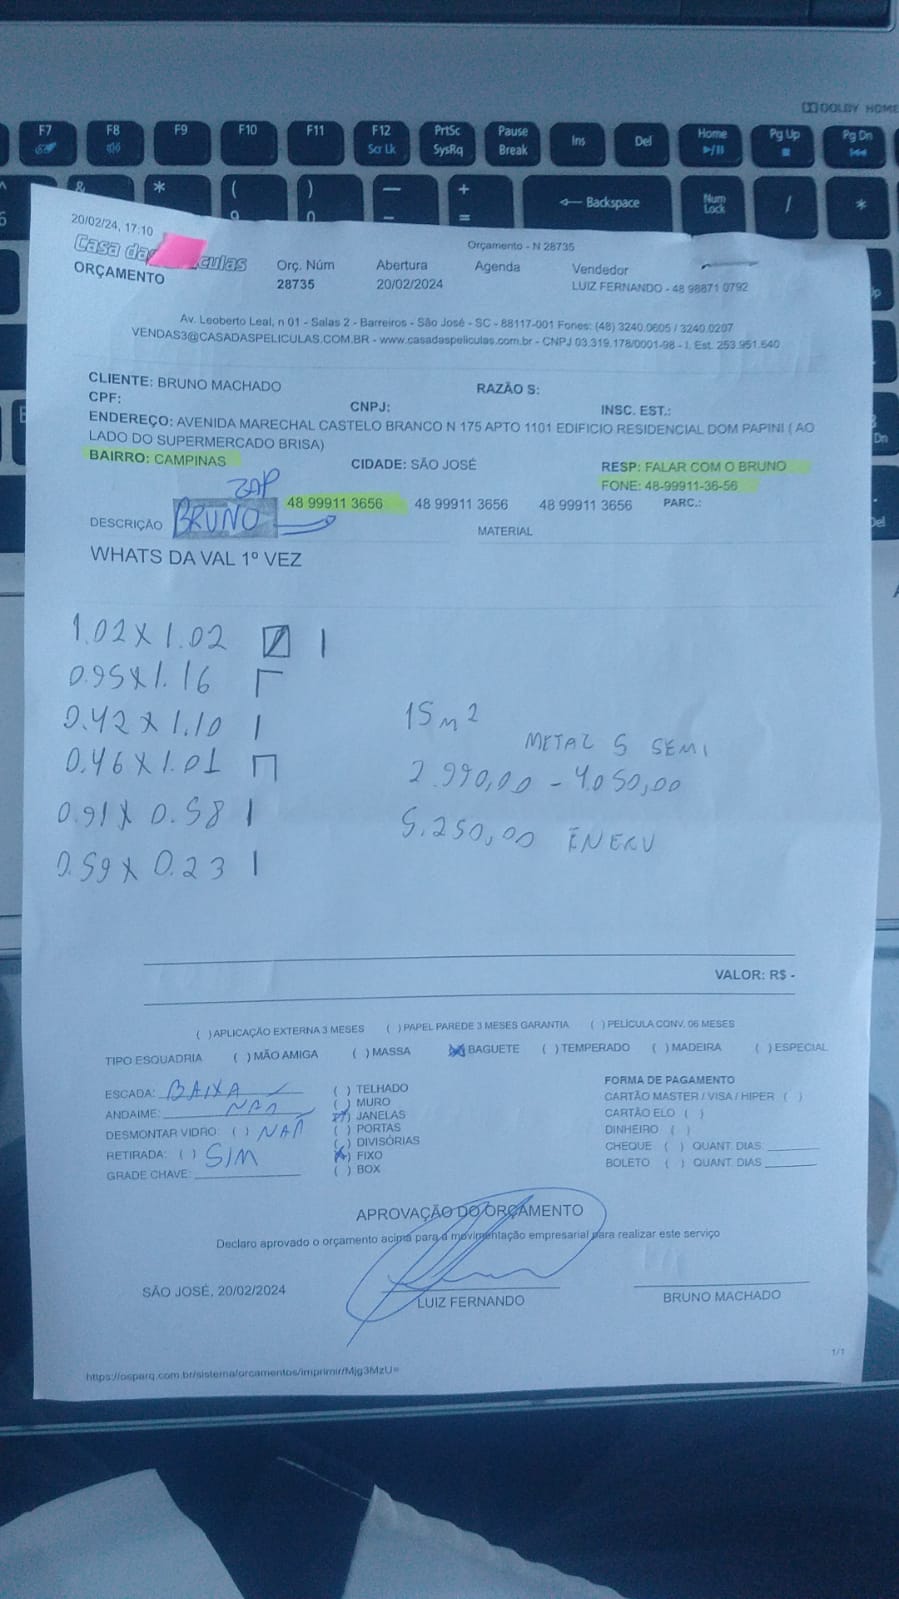 DOLBY HOME
F7 F8 F9 F10 F11 F12 PrtSc Pause Ins Del Home Pg Up Pg Dn
Scr Lk SysRq Break
& * ( ) — + Backspace Num Lock / *
9 0 - =
20/02/24, 17:10
Orçamento - N 28735
Casa das culas
ORÇAMENTO
Orç. Núm Abertura Agenda Vendedor
28735 20/02/2024 LUIZ FERNANDO - 48 98871 0792
Av. Leoberto Leal, n 01 - Salas 2 - Barreiros - São José - SC - 88117-001 Fones: (48) 3240.0605 / 3240.0207
VENDAS3@CASADASPELICULAS.COM.BR - www.casadaspeliculas.com.br - CNPJ 03.319.178/0001-98 - I. Est. 253.951.640
CLIENTE: BRUNO MACHADO RAZÃO S:
CPF: CNPJ: INSC. EST.:
ENDEREÇO: AVENIDA MARECHAL CASTELO BRANCO N 175 APTO 1101 EDIFICIO RESIDENCIAL DOM PAPINI ( AO
LADO DO SUPERMERCADO BRISA)
BAIRRO: CAMPINAS CIDADE: SÃO JOSÉ RESP: FALAR COM O BRUNO
FONE: 48-99911-36-56
ZAP
48 99911 3656 48 99911 3656 48 99911 3656 PARC.:
DESCRIÇÃO BRUNO MATERIAL
WHATS DA VAL 1º VEZ
1.02 X 1.02
0.95 X 1.16
0.42 X 1.10 15 m2
METAL S SEMI
0.46 X 1.01 2.990,00 - 4.050,00
0.91 X 0.58 5.250,00
0.59 X 0.23
VALOR: R$ -
( ) APLICAÇÃO EXTERNA 3 MESES ( ) PAPEL PAREDE 3 MESES GARANTIA ( ) PELÍCULA CONV. 06 MESES
TIPO ESQUADRIA ( ) MÃO AMIGA ( ) MASSA (X) BAGUETE ( ) TEMPERADO ( ) MADEIRA ( ) ESPECIAL
ESCADA: BAIXA ( ) TELHADO FORMA DE PAGAMENTO
( ) MURO CARTÃO MASTER / VISA / HIPER ( )
ANDAIME: NAO (X) JANELAS CARTÃO ELO ( )
DESMONTAR VIDRO: ( ) NAO ( ) PORTAS DINHEIRO ( )
( ) DIVISÓRIAS CHEQUE ( ) QUANT. DIAS
RETIRADA: ( ) SIM (X) FIXO BOLETO ( ) QUANT. DIAS
GRADE CHAVE: ( ) BOX
APROVAÇÃO DO ORÇAMENTO
Declaro aprovado o orçamento acima para a movimentação empresarial para realizar este serviço
SÃO JOSÉ, 20/02/2024
LUIZ FERNANDO BRUNO MACHADO
1/1
https://osparq.com.br/sistema/orcamentos/imprimir/Mjg3MzU=